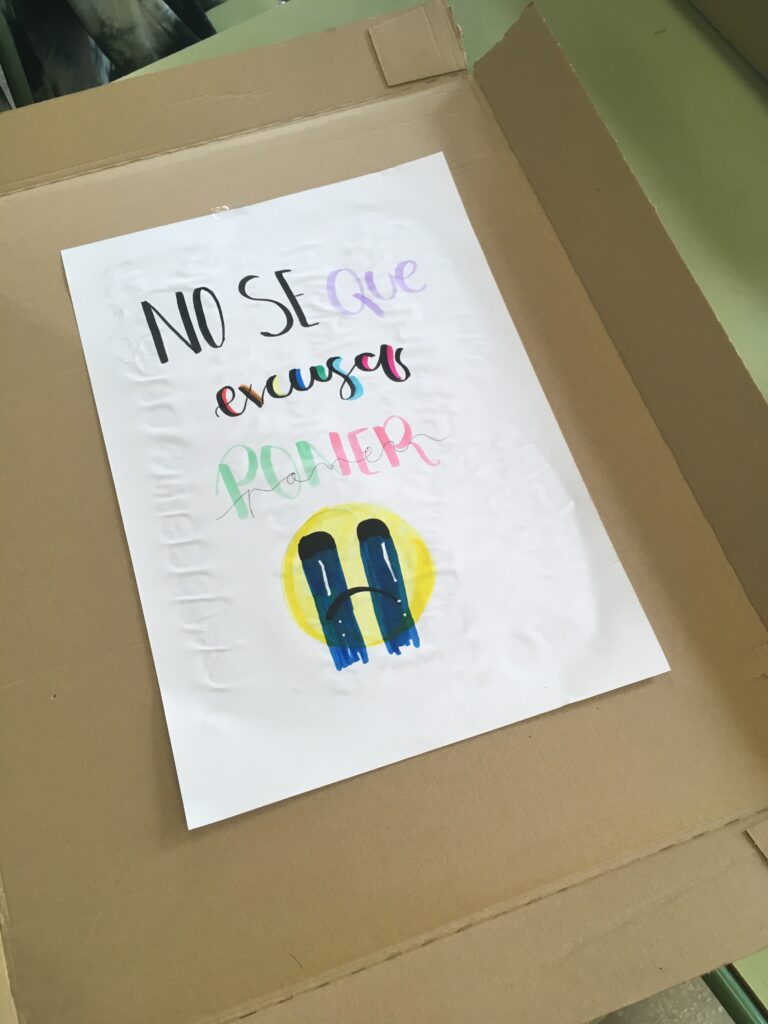 NO SE Que
excusas
PONER
poner